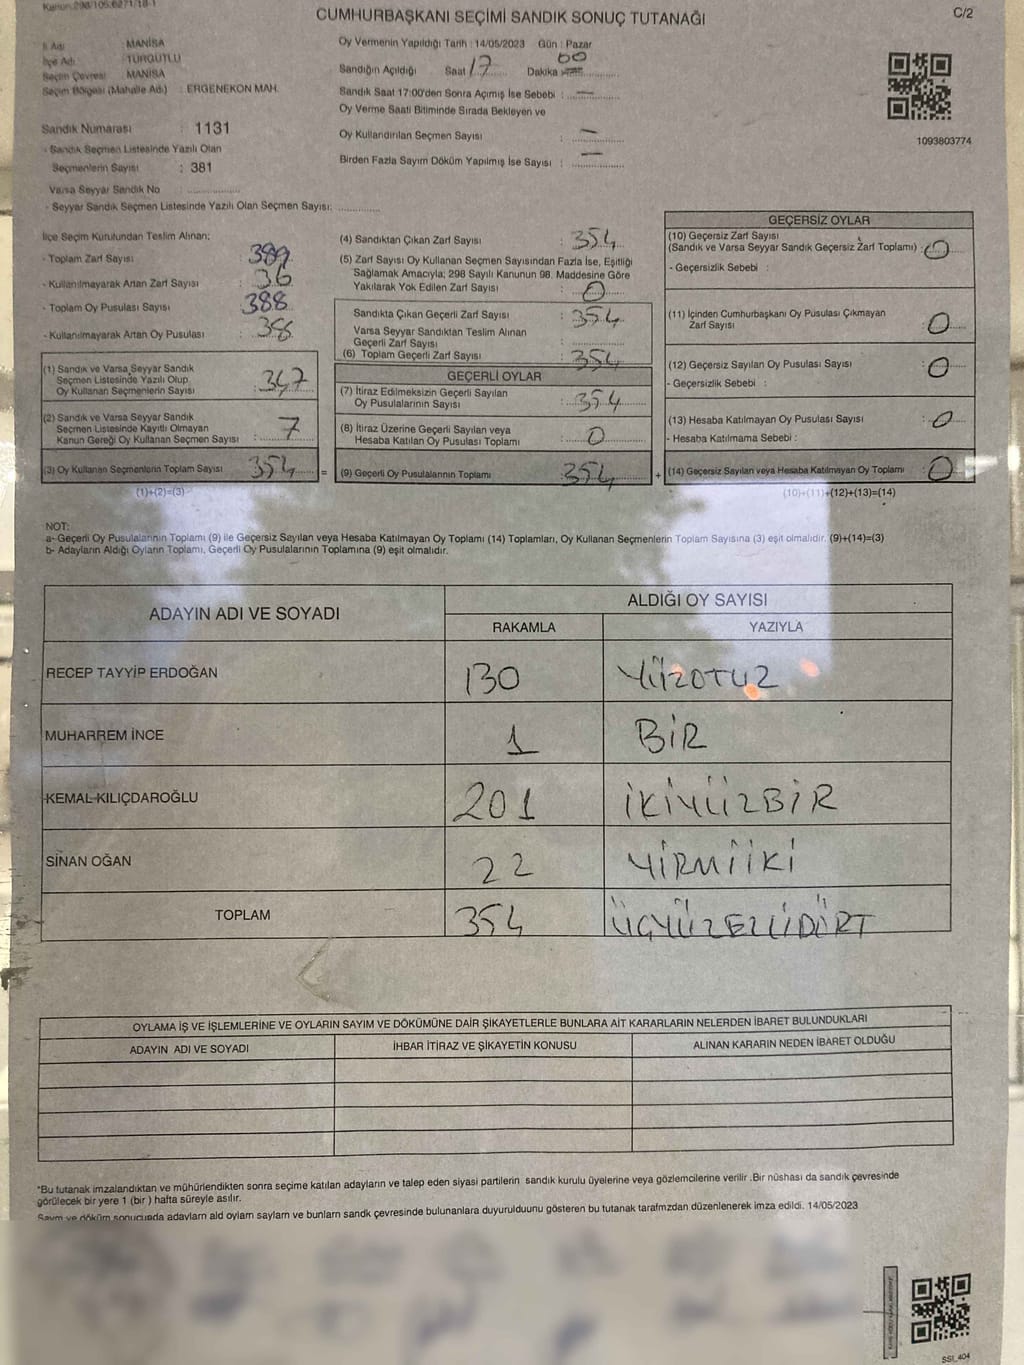 Kanun:298/105,6271/18-1
CUMHURBAŞKANI SEÇİMİ SANDIK SONUÇ TUTANAĞI
C/2
İl Adı : MANİSA
İlçe Adı : TURGUTLU
Seçim Çevresi : MANİSA
Seçim Bölgesi (Mahalle Adı) : ERGENEKON MAH.
Sandık Numarası : 1131
- Sandık Seçmen Listesinde Yazılı Olan
Seçmenlerin Sayısı : 381
Varsa Seyyar Sandık No
- Seyyar Sandık Seçmen Listesinde Yazılı Olan Seçmen Sayısı:
Oy Vermenin Yapıldığı Tarih : 14/05/2023 Gün : Pazar
Sandığın Açıldığı Saat 17 Dakika 00
Sandık Saat 17:00'den Sonra Açımış İse Sebebi : —
Oy Verme Saati Bitiminde Sırada Bekleyen ve
Oy Kullandırılan Seçmen Sayısı : —
Birden Fazla Sayım Döküm Yapılmış İse Sayısı : —
1093803774
İlçe Seçim Kurulundan Teslim Alınan:
- Toplam Zarf Sayısı : 389
- Kullanılmayarak Artan Zarf Sayısı : 36
- Toplam Oy Pusulası Sayısı : 388
- Kullanılmayarak Artan Oy Pusulası :
(1) Sandık ve Varsa Seyyar Sandık
Seçmen Listesinde Yazılı Olup
Oy Kullanan Seçmenlerin Sayısı : 347
(2) Sandık ve Varsa Seyyar Sandık
Seçmen Listesinde Kayıtlı Olmayan
Kanun Gereği Oy Kullanan Seçmen Sayısı : 7
(3) Oy Kullanan Seçmenlerin Toplam Sayısı 354
(1)+(2)=(3)
=
(4) Sandıktan Çıkan Zarf Sayısı : 354
(5) Zarf Sayısı Oy Kullanan Seçmen Sayısından Fazla İse, Eşitliği
Sağlamak Amacıyla; 298 Sayılı Kanunun 98. Maddesine Göre
Yakılarak Yok Edilen Zarf Sayısı : 0
Sandıkta Çıkan Geçerli Zarf Sayısı : 354
Varsa Seyyar Sandıktan Teslim Alınan
Geçerli Zarf Sayısı :
(6) Toplam Geçerli Zarf Sayısı : 354
GEÇERLİ OYLAR
(7) İtiraz Edilmeksizin Geçerli Sayılan
Oy Pusulalarının Sayısı : 354
(8) İtiraz Üzerine Geçerli Sayılan veya
Hesaba Katılan Oy Pusulası Toplamı : 0
(9) Geçerli Oy Pusulalarının Toplamı 354
+
GEÇERSİZ OYLAR
(10) Geçersiz Zarf Sayısı
(Sandık ve Varsa Seyyar Sandık Geçersiz Zarf Toplamı) : 0
- Geçersizlik Sebebi :
(11) İçinden Cumhurbaşkanı Oy Pusulası Çıkmayan
Zarf Sayısı : 0
(12) Geçersiz Sayılan Oy Pusulası Sayısı : 0
- Geçersizlik Sebebi :
(13) Hesaba Katılmayan Oy Pusulası Sayısı : 0
- Hesaba Katılmama Sebebi :
(14) Geçersiz Sayılan veya Hesaba Katılmayan Oy Toplamı : 0
(10)+(11)+(12)+(13)=(14)
NOT:
a- Geçerli Oy Pusulalarının Toplamı (9) ile Geçersiz Sayılan veya Hesaba Katılmayan Oy Toplamı (14) Toplamları, Oy Kullanan Seçmenlerin Toplam Sayısına (3) eşit olmalıdır. (9)+(14)=(3)
b- Adayların Aldığı Oyların Toplamı, Geçerli Oy Pusulalarının Toplamına (9) eşit olmalıdır.
ADAYIN ADI VE SOYADI
ALDIĞI OY SAYISI
RAKAMLA YAZIYLA
RECEP TAYYİP ERDOĞAN 130 YÜZOTUZ
MUHARREM İNCE 1 BİR
KEMAL KILIÇDAROĞLU 201 İKİYÜZBİR
SİNAN OĞAN 22 YİRMİİKİ
TOPLAM 354 ÜÇYÜZELLİDÖRT
OYLAMA İŞ VE İŞLEMLERİNE VE OYLARIN SAYIM VE DÖKÜMÜNE DAİR ŞİKAYETLERLE BUNLARA AİT KARARLARIN NELERDEN İBARET BULUNDUKLARI
ADAYIN ADI VE SOYADI İHBAR İTİRAZ VE ŞİKAYETİN KONUSU ALINAN KARARIN NEDEN İBARET OLDUĞU
*Bu tutanak imzalandıktan ve mühürlendikten sonra seçime katılan adayların ve talep eden siyasi partilerin sandık kurulu üyelerine veya gözlemcilerine verilir .Bir nüshası da sandık çevresinde
görülecek bir yere 1 (bir ) hafta süreyle asılır.
Sayım ve döküm sonucunda adayların ald oyların sayların ve bunların sandk çevresinde bulunanlara duyurulduunu gösteren bu tutanak tarafmzdan düzenlenerek imza edildi. 14/05/2023
SSI_404